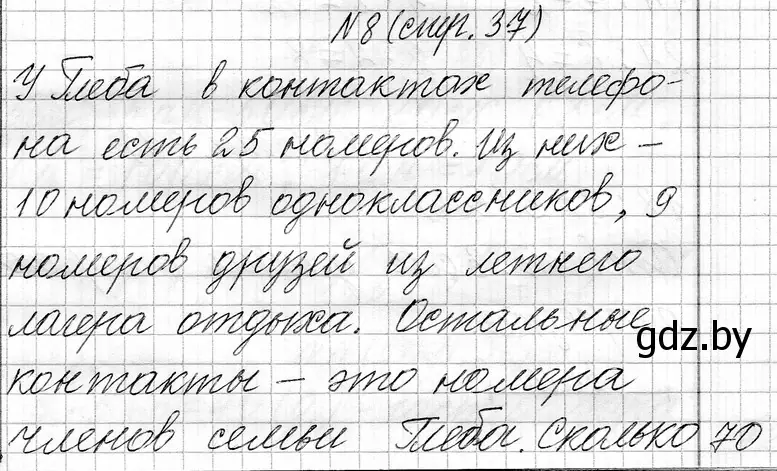 N8 (стр. 37)
У Глеба в контактах телефо-
на есть 25 номеров. Из них -
10 номеров одноклассников, 9
номеров друзей из летнего
лагера отдыха. Остальные
gdz.by
контакты - это номера
членов семьи Глеба. Сколько 70